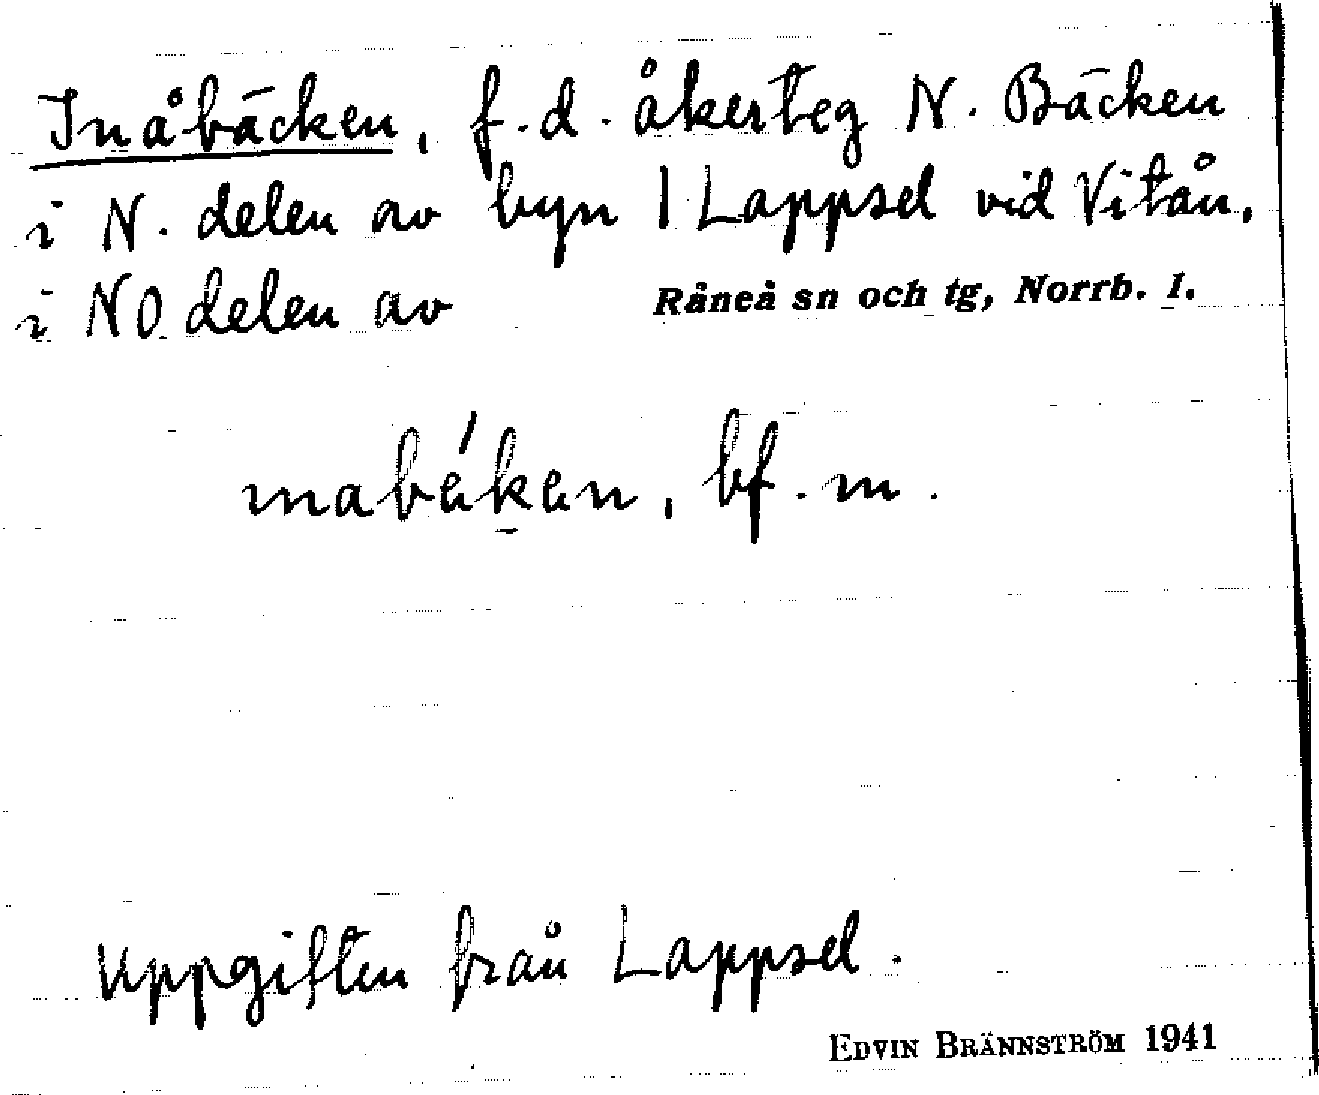 Inåbäcken, f.d. åkerteg N. Bäcken
i N. delen av byn 1 Lappsel vid Vitån,
i NO delen av Råneå sn och tg, Norrb. l.
inabéken, bf. m.
Uppgiften från Lappsel.
EDVIN BRÄNNSTRÖM 1941